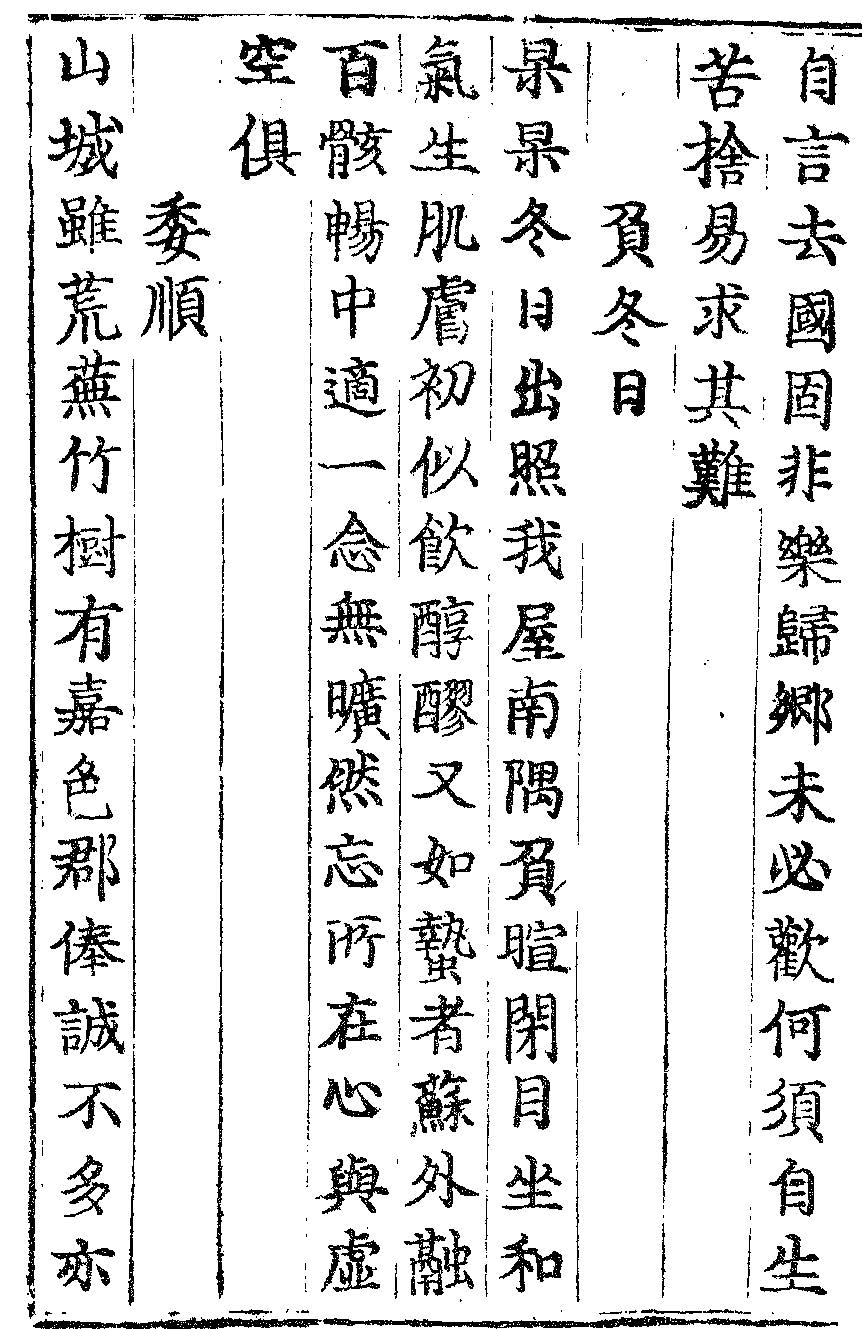 自言去國固非樂歸鄉未必歡何須自生
苦捨易求其難
負冬日
杲杲冬日出照我屋南隅負暄閉目坐和
氣生肌膚初似飲醇醪又如蟄者蘇外融
百骸暢中適一念無曠然忘所在心與虛
空俱
委順
山城雖荒蕪竹樹有嘉色郡俸誠不多亦